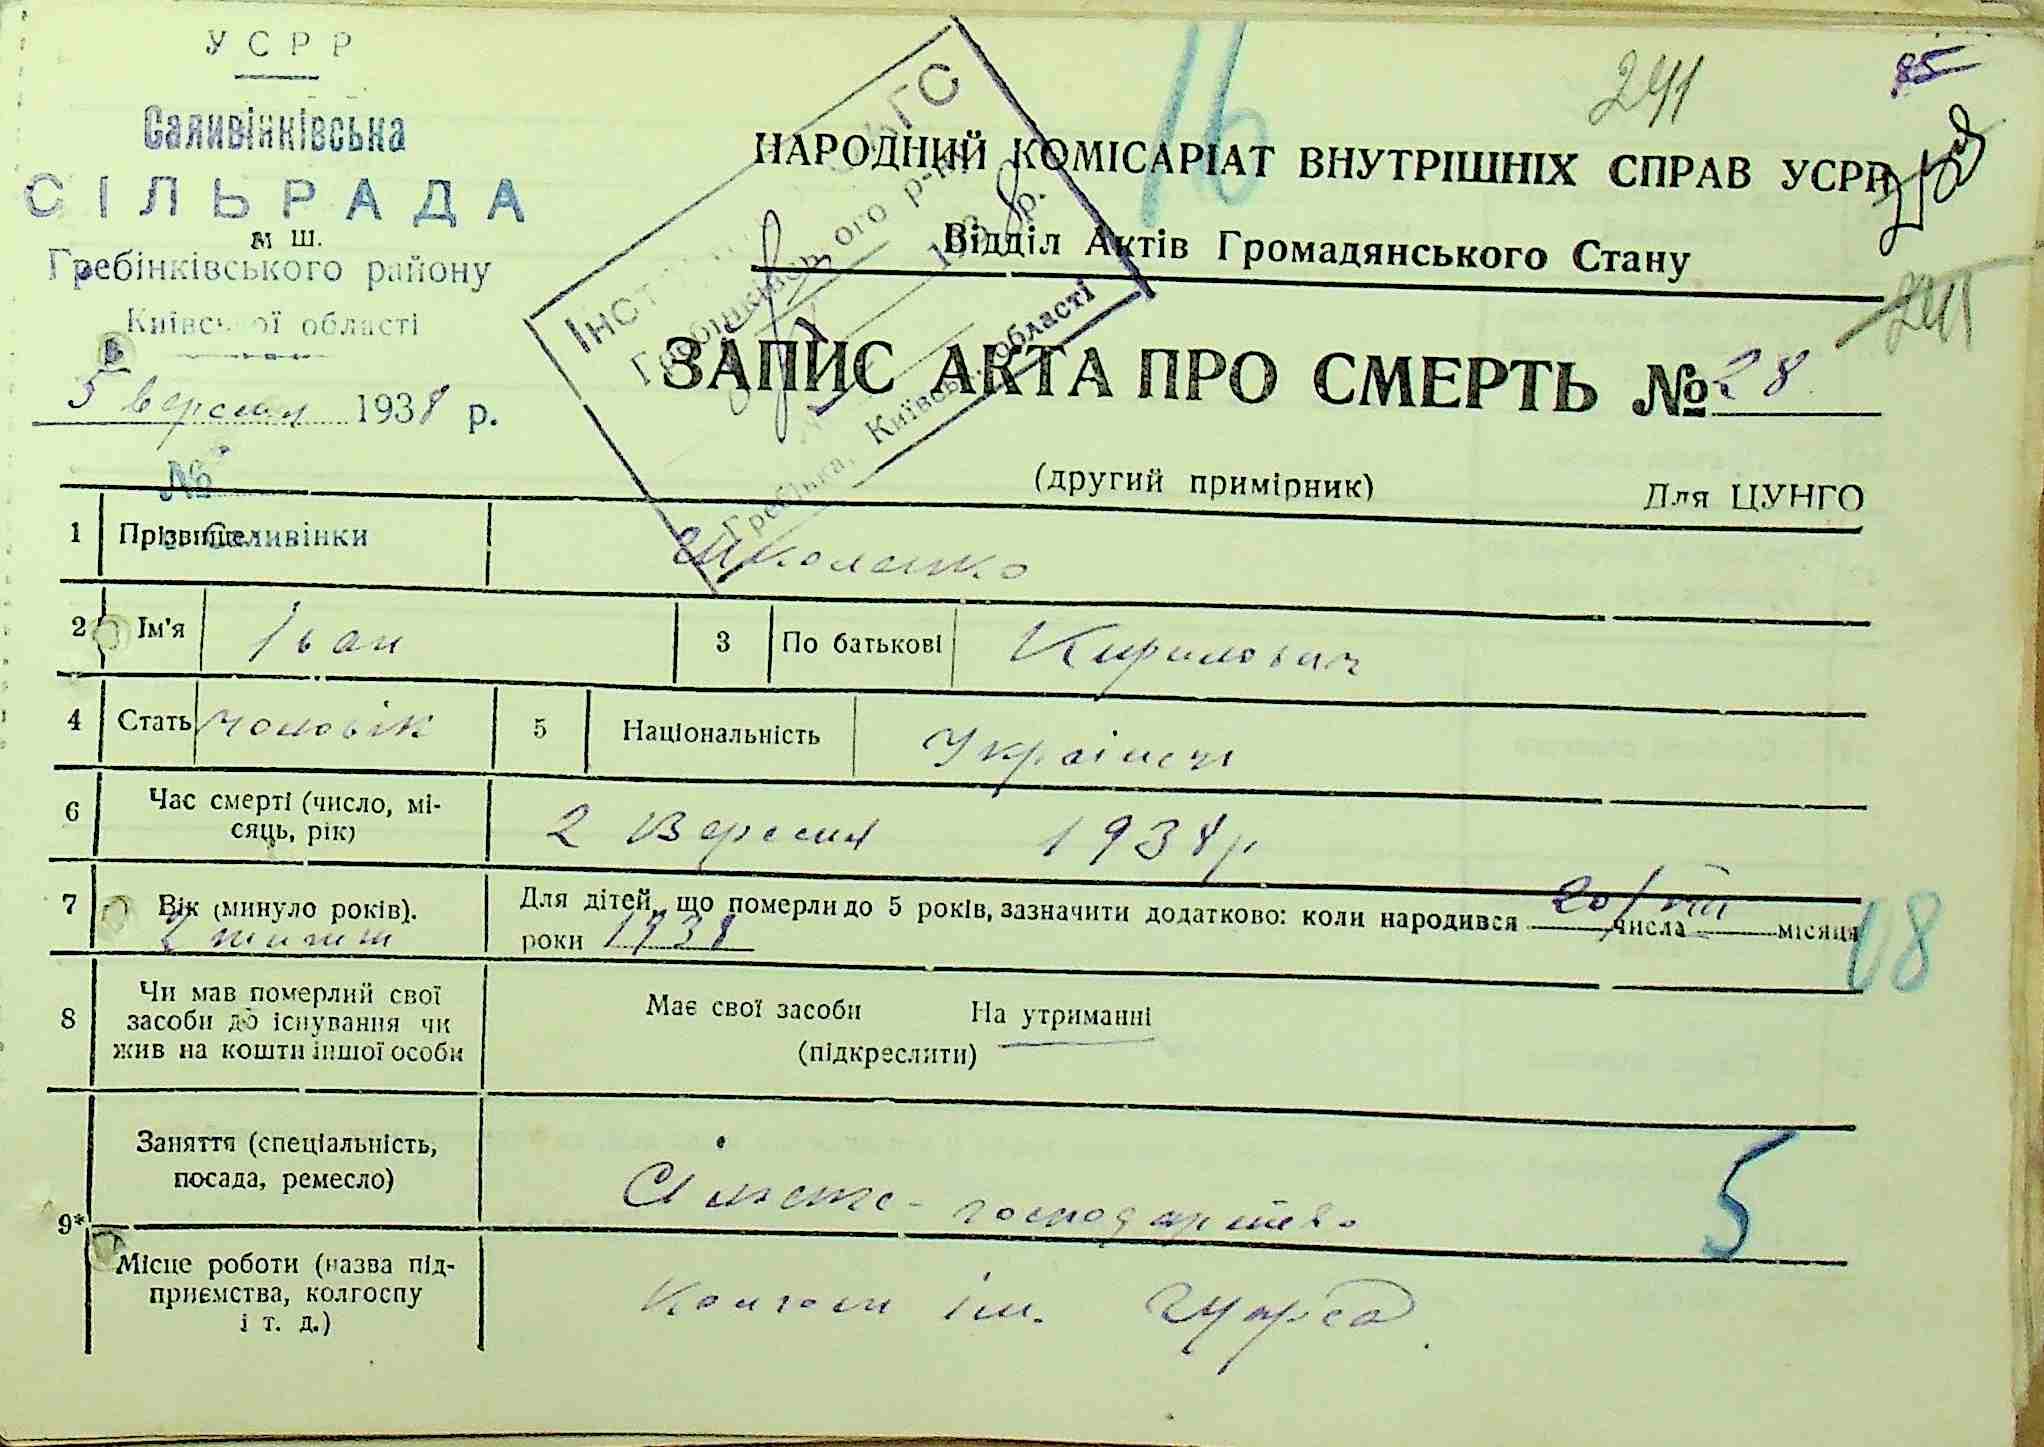 УСРР
Саливінківська
СІЛЬРАДА
м ш.
Гребінківського району
Київської області
5 вересня 1938 р.
№
с. Саливінки
16
241
85
НАРОДНИЙ КОМІСАРІАТ ВНУТРІШНІХ СПРАВ УСРР
Відділ Актів Громадянського Стану
241
ЗАПИС АКТА ПРО СМЕРТЬ № 28
(другий примірник)
Для ЦУНГО
ЗАГС
Гребінківського р-ну
1938 р.
Гребінка, Київськ. області
1 Прізвище Школенко
2 Ім'я Іван 3 По батькові Кирилович
4 Стать чоловік 5 Національність Українець
6 Час смерті (число, мі-
сяць, рік) 2 Вересня 1938 р
7 Вік (минуло років). Для дітей, що померли до 5 років, зазначити додатково: коли народився 20/VIII числа місяця
2 тижні роки 1938
18
8 Чи мав померлий свої
засоби до існування чи
жив на кошти іншої особи
Має свої засоби На утриманні
(підкреслити)
9* Заняття (спеціальність,
посада, ремесло) Сільське-господарство
5
Місце роботи (назва під-
приємства, колгоспу
і т. д.) Колгосп ім.